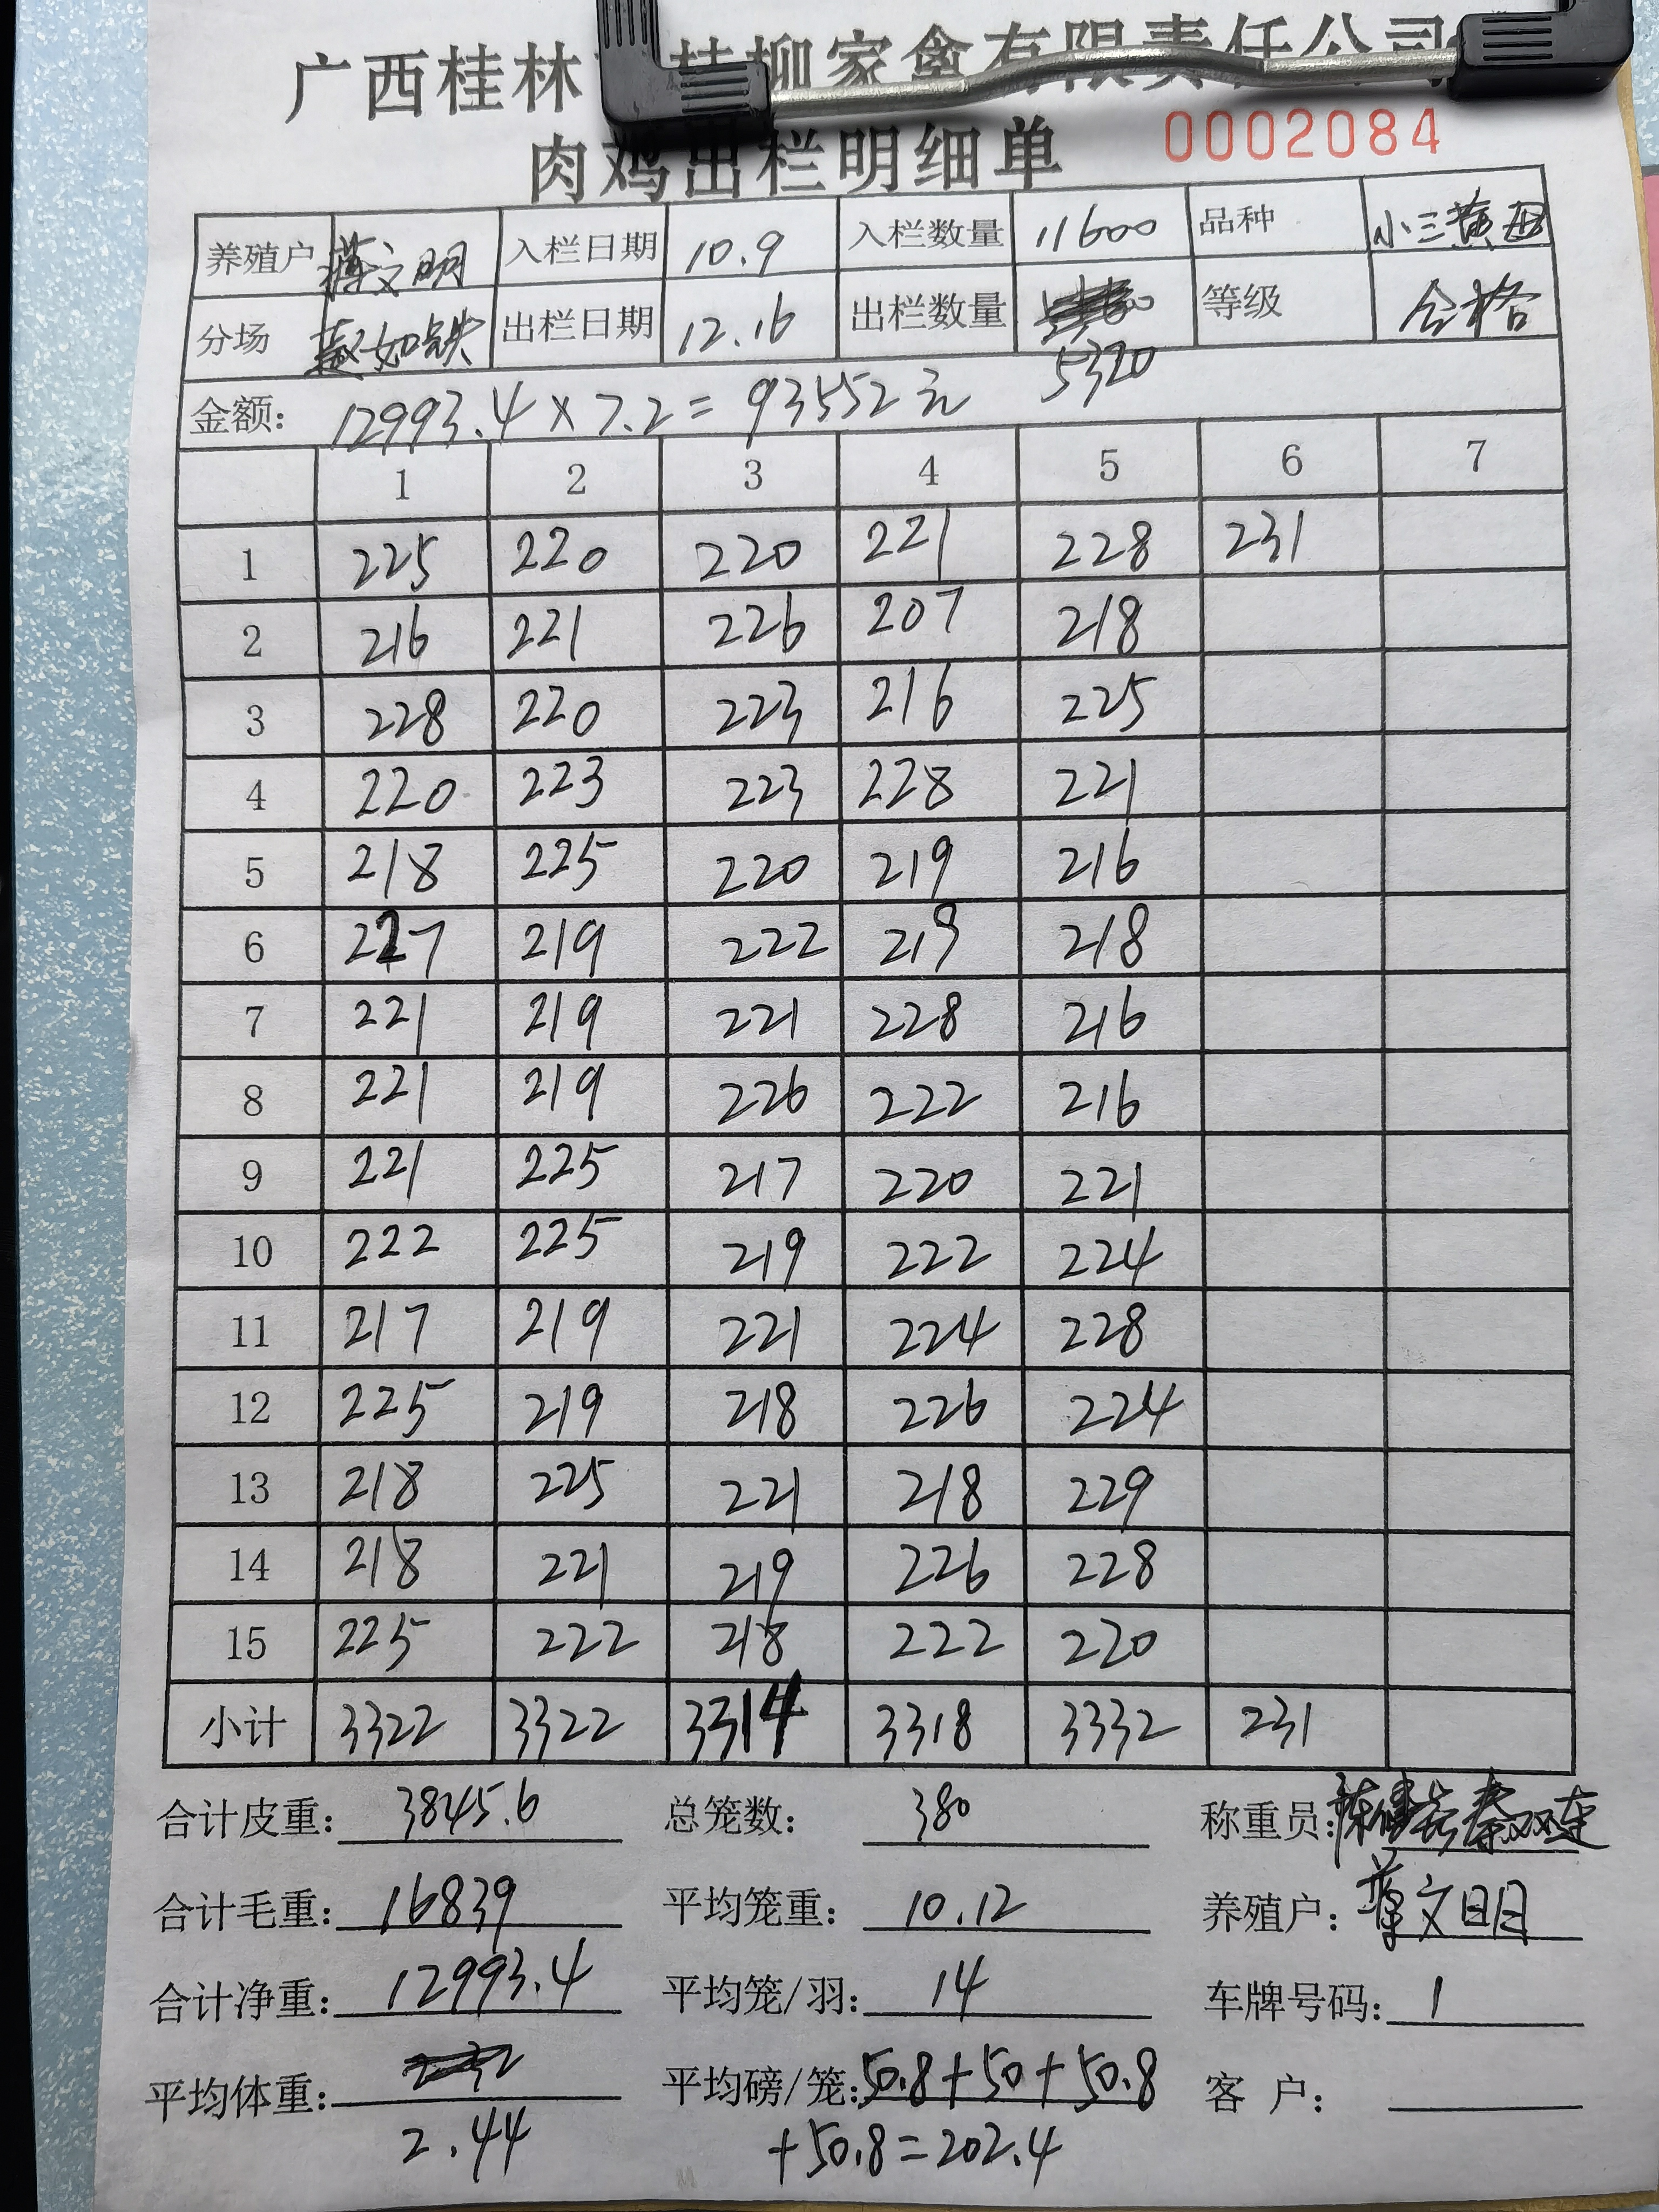 广西桂林 桂柳家禽有限责任公司
肉鸡出栏明细单 0002084
养殖户 蒋文明 入栏日期 10.9 入栏数量 11600 品种 小三黄母
分场 出栏日期 12.16 出栏数量 5320 等级 合格
金额: 12993.4×7.2=93552元
1 2 3 4 5 6 7
1 225 220 220 221 228 231
2 216 221 226 207 218
3 228 220 223 216 225
4 220 223 223 228 221
5 218 225 220 219 216
6 227 219 222 219 218
7 221 219 221 228 216
8 221 219 226 222 216
9 221 225 217 220 221
10 222 225 219 222 224
11 217 219 221 224 228
12 225 219 218 226 224
13 218 225 221 218 229
14 218 221 219 226 228
15 225 222 218 222 220
小计 3322 3322 3314 3318 3332 231
合计皮重: 3845.6 总笼数: 380 称重员: 秦双连
合计毛重: 16839 平均笼重: 10.12 养殖户: 蒋文明
合计净重: 12993.4 平均笼/羽: 14 车牌号码: 1
平均体重: 2.44 平均磅/笼: 50.8+50+50.8 客 户:
+50.8=202.4